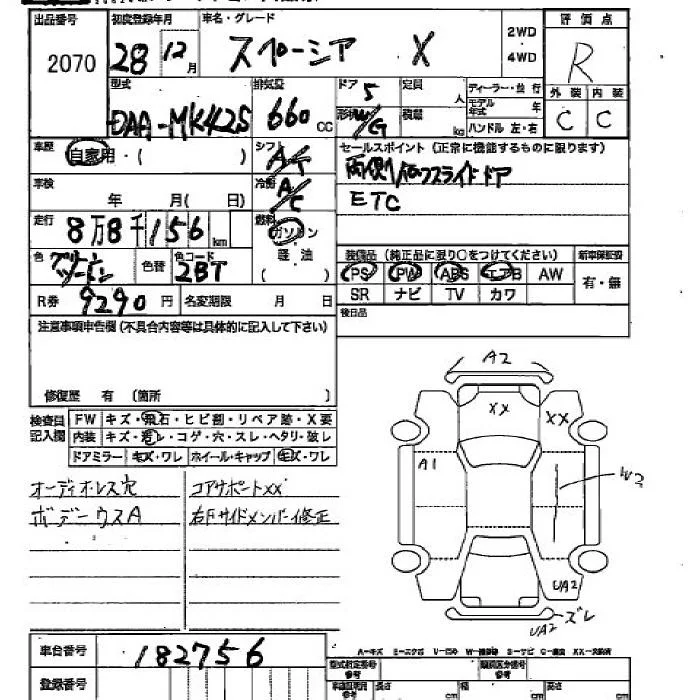 出品番号 初度登録年月 車名・グレード 2WD 4WD 評価点
2070 28 12月 スペーシア X R
型式 排気量 ドア 5 定員 人 ディーラー・並行 外装 内装
DAA-MK42S 660cc 形状 W/G 積載 kg モデル年式 年 C C
ハンドル 左・右
車歴 自家用・( ) シフト AT セールスポイント (正常に機能するものに限ります)
両側パワースライドドア
車検 年 月( 日) 冷房 A/C ETC
走行 8万8千156km 燃料 ガソリン 軽油 ( )
色 グリーンツートン 色替 色コード 2BT 装備品 (純正品に限り○をつけてください) 新車保証書
PS PW ABS エアB AW 有・無
R券 9290円 名変期限 月 日 SR ナビ TV カワ
注意事項申告欄(不具合内容等は具体的に記入して下さい) 後日品
修復歴 有 〔箇所 〕
検査員記入欄 FW キズ・飛石・ヒビ割・リペア跡・X要
内装 キズ・汚レ・コゲ・穴・スレ・ヘタリ・破レ
ドアミラー キズ・ワレ ホイール・キャップ キズ・ワレ
オーディオレス穴 コアサポートXX
ボデーウスA 右Fサイドメンバー修正
A2
XX XX
A1
W2
UA2
UA2 ズレ
車台番号 182756
A-キズ E-エクボ
型式指定番号 類別区分番号
登録番号 長さ cm 幅 cm 高さ cm